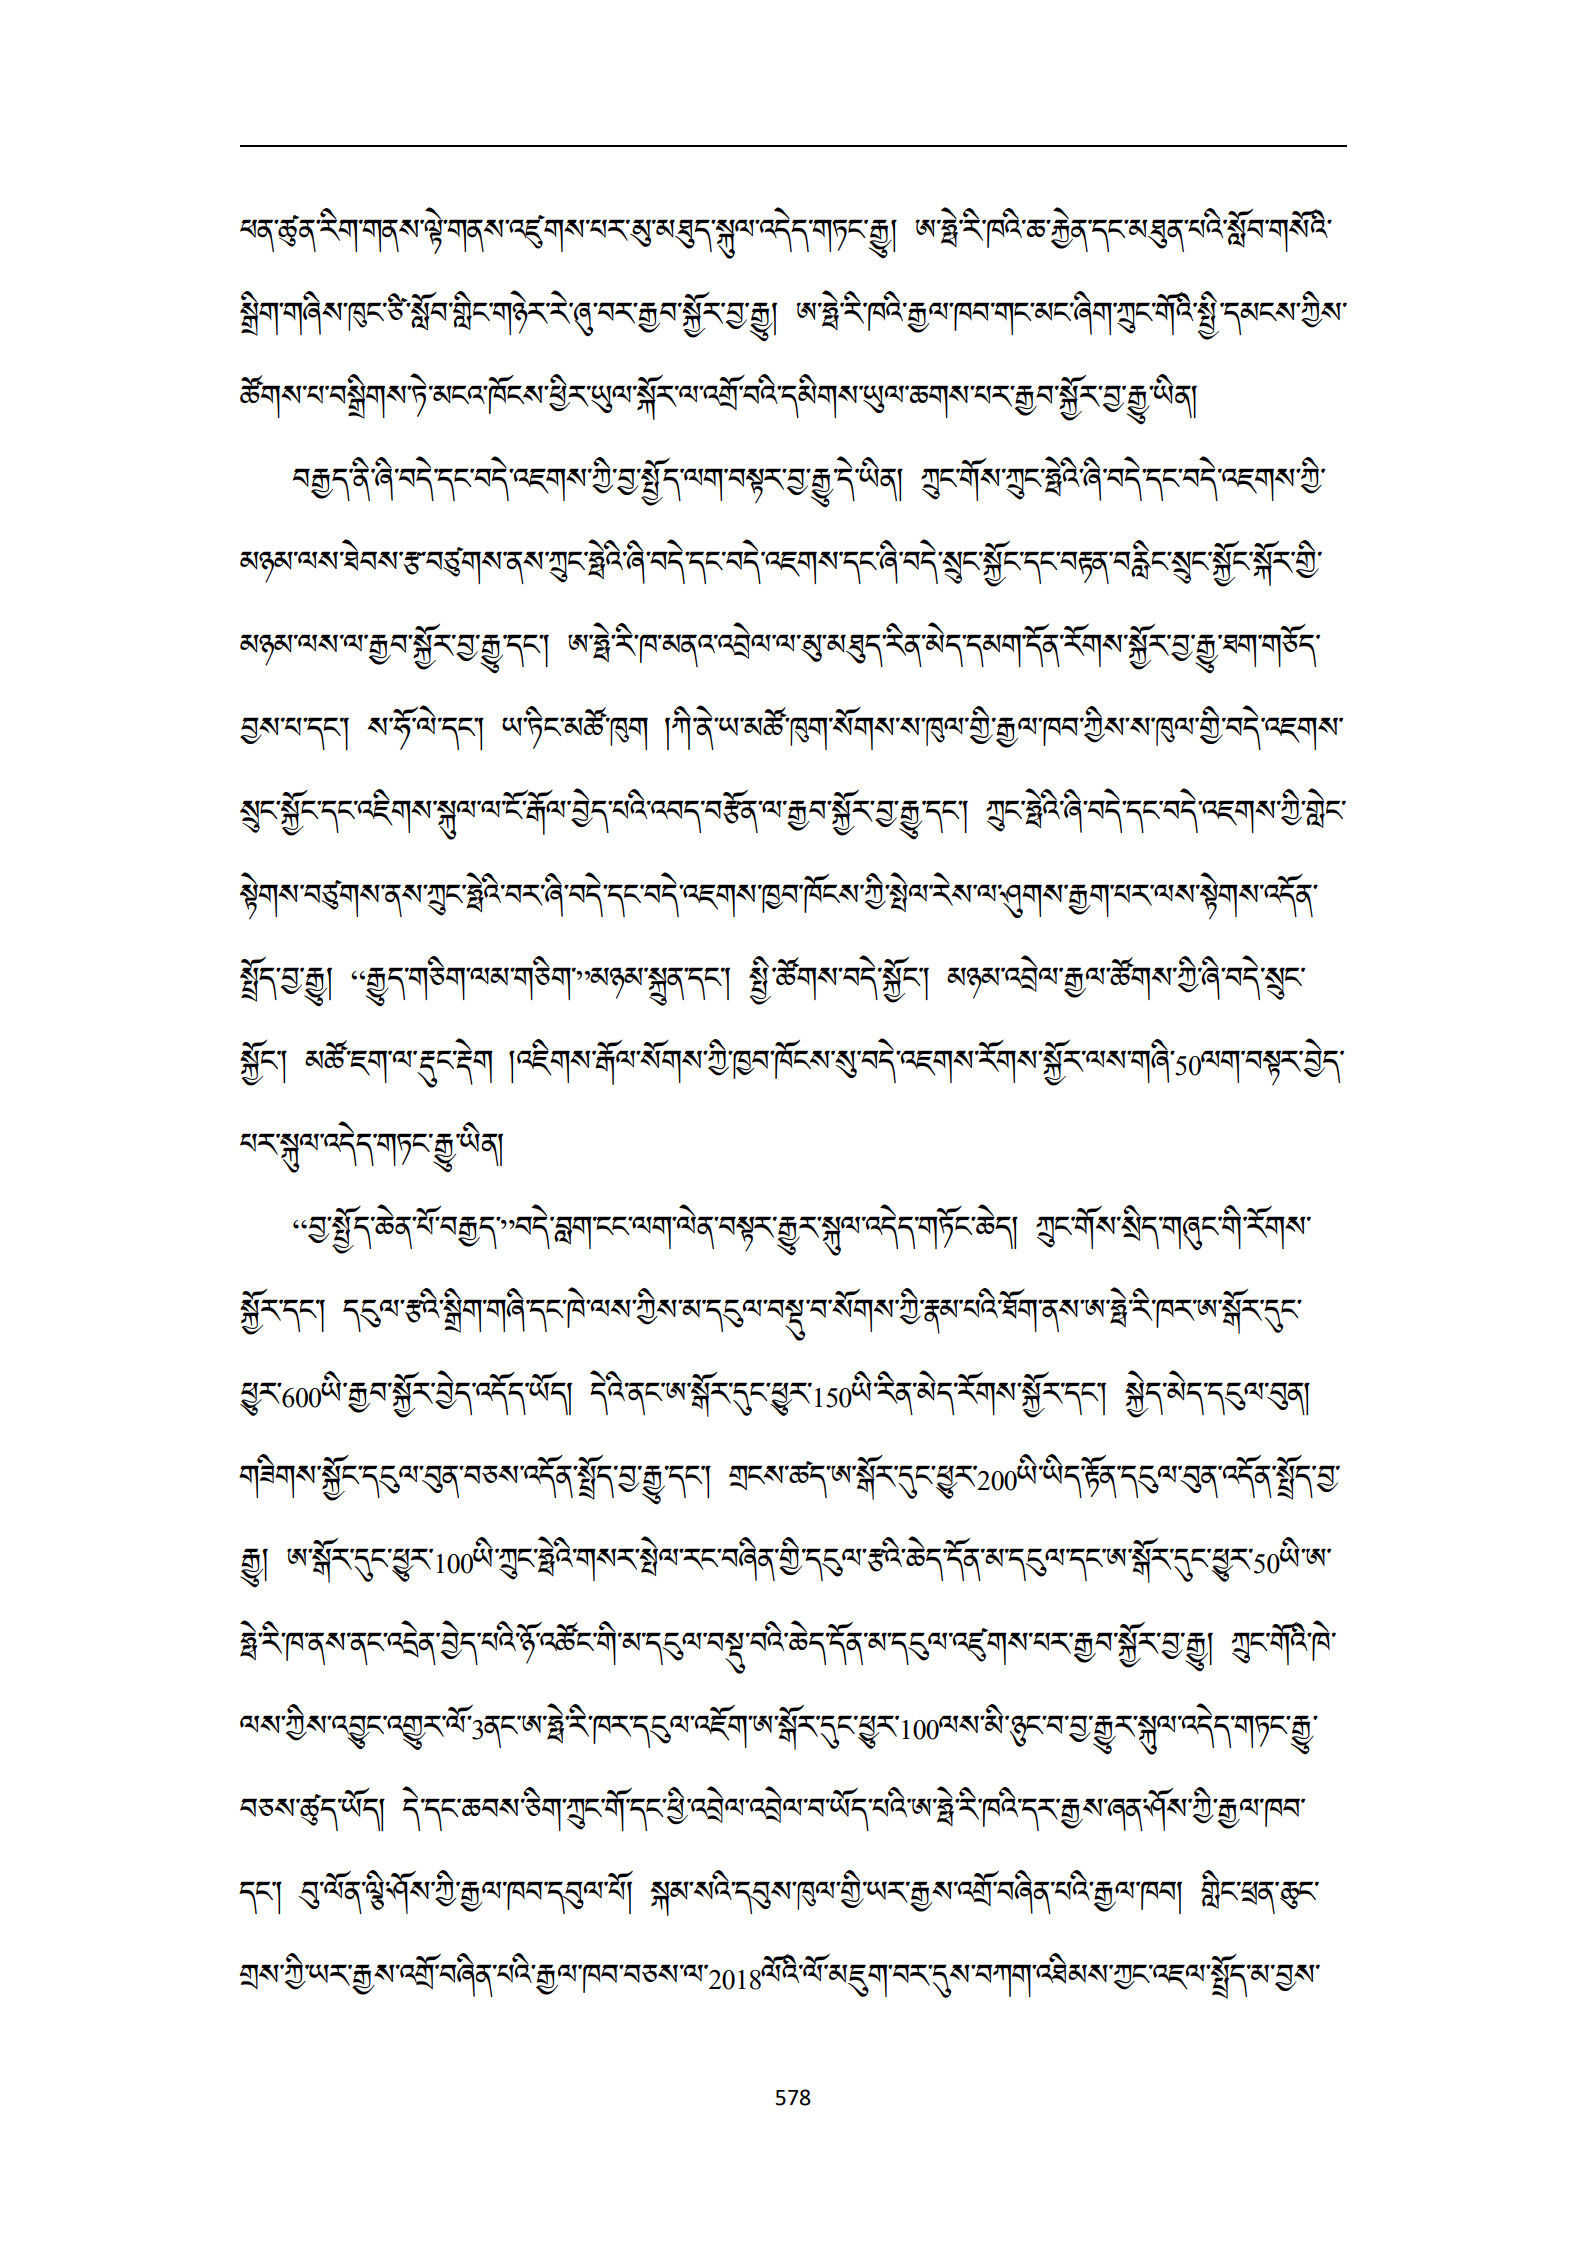 ཕན་ཚུན་རིག་གནས་ལྟེ་གནས་འཛུགས་པར་མུ་མཐུད་སྐུལ་འདེད་གཏང་རྒྱུ། ཨ་ཧྥེ་རི་ཁའི་ཆ་རྐྱེན་དང་མཐུན་པའི་སློབ་གསོའི་
སྒྲིག་གཞིས་ཁུང་ཙིི་སློབ་གླིང་གཉེར་རེ་ཞུ་བར་རྒྱབ་སྐྱོར་བྱ་རྒྱུ། ཨ་ཧྥེ་རི་ཁའི་རྒྱལ་ཁབ་གང་མང་ཞིག་ཀྲུང་གོའི་སྤྱི་དམངས་ཀྱིས་
ཚོགས་པ་བསྒྲིགས་ཏེ་མངའ་ཁོངས་ཕྱིར་ཡུལ་སྐོར་ལ་འགྲོ་བའི་དམིགས་ཡུལ་ཆགས་པར་རྒྱབ་སྐྱོར་བྱ་རྒྱུ་ཡིན།
བརྒྱད་ནི་ཞི་བདེ་དང་བདེ་འཇགས་ཀྱི་བྱ་སྤྱོད་ལག་བསྟར་བྱ་རྒྱུ་དེ་ཡིན། ཀྲུང་གོས་ཀྲུང་ཧྥེའི་ཞི་བདེ་དང་བདེ་འཇགས་ཀྱི་
མཉམ་ལས་ཐེབས་རྩ་བཙུགས་ནས་ཀྲུང་ཧྥེའི་ཞི་བདེ་དང་བདེ་འཇགས་དང་ཞི་བདེ་སྲུང་སྐྱོང་དང་བརྟན་བརླིང་སྲུང་སྐྱོང་སྐོར་གྱི་
མཉམ་ལས་ལ་རྒྱབ་སྐྱོར་བྱ་རྒྱུ་དང་། ཨ་ཧྥེ་རི་ཁ་མནའ་འབྲེལ་ལ་མུ་མཐུད་རིན་མེད་དམག་དོན་རོགས་སྐྱོར་བྱ་རྒྱུ་ཐག་གཅོད་
བྱས་པ་དང་། ས་ཧོ་ལེ་དང་། ཡ་ཏིང་མཚོ་ཁུག །ཀི་ནེ་ཡ་མཚོ་ཁུག་སོགས་ས་ཁུལ་གྱི་རྒྱལ་ཁབ་ཀྱིས་ས་ཁུལ་གྱི་བདེ་འཇགས་
སྲུང་སྐྱོང་དང་འཇིགས་སྐུལ་ལ་ངོ་རྒོལ་བྱེད་པའི་འབད་བརྩོན་ལ་རྒྱབ་སྐྱོར་བྱ་རྒྱུ་དང་། ཀྲུང་ཧྥེའི་ཞི་བདེ་དང་བདེ་འཇགས་ཀྱི་གླེང་
སྟེགས་བཙུགས་ནས་ཀྲུང་ཧྥེའི་བར་ཞི་བདེ་དང་བདེ་འཇགས་ཁྱབ་ཁོངས་ཀྱི་སྤེལ་རེས་ལ་ཤུགས་རྒྱག་པར་ལས་སྟེགས་འདོན་
སྤྲོད་བྱ་རྒྱུ། “རྒྱུད་གཅིག་ལམ་གཅིག་”མཉམ་སྐྲུན་དང་། སྤྱི་ཚོགས་བདེ་སྐྱོང་། མཉམ་འབྲེལ་རྒྱལ་ཚོགས་ཀྱི་ཞི་བདེ་སྲུང་
སྐྱོང་། མཚོ་ཇག་ལ་རྡུང་རྡེག །འཇིགས་རྒོལ་སོགས་ཀྱི་ཁྱབ་ཁོངས་སུ་བདེ་འཇགས་རོགས་སྐྱོར་ལས་གཞི་50ལག་བསྟར་བྱེད་
པར་སྐུལ་འདེད་གཏང་རྒྱུ་ཡིན།
“བྱ་སྤྱོད་ཆེན་པོ་བརྒྱད་”བདེ་བླག་ངང་ལག་ལེན་བསྟར་རྒྱུར་སྐུལ་འདེད་གཏོང་ཆེད། ཀྲུང་གོས་སྲིད་གཞུང་གི་རོགས་
སྐྱོར་དང་། དངུལ་རྩའི་སྒྲིག་གཞི་དང་ཁེ་ལས་ཀྱིས་མ་དངུལ་བསྡུ་བ་སོགས་ཀྱི་རྣམ་པའི་ཐོག་ནས་ཨ་ཧྥེ་རི་ཁར་ཨ་སྒོར་དུང་
ཕྱུར་600ཡི་རྒྱབ་སྐྱོར་བྱེད་འདོད་ཡོད། དེའི་ནང་ཨ་སྒོར་དུང་ཕྱུར་150ཡི་རིན་མེད་རོགས་སྐྱོར་དང་། སྐྱེད་མེད་དངུལ་བུན།
གཟིགས་སྐྱོང་དངུལ་བུན་བཅས་འདོན་སྤྲོད་བྱ་རྒྱུ་དང་། གྲངས་ཚད་ཨ་སྒོར་དུང་ཕྱུར་200ཡི་ཡིད་རྟོན་དངུལ་བུན་འདོན་སྤྲོད་བྱ་
རྒྱུ། ཨ་སྒོར་དུང་ཕྱུར་100ཡི་ཀྲུང་ཧྥེའི་གསར་སྤེལ་རང་བཞིན་གྱི་དངུལ་རྩའི་ཆེད་དོན་མ་དངུལ་དང་ཨ་སྒོར་དུང་ཕྱུར་50ཡི་ཨ་
ཧྥེ་རི་ཁ་ནས་ནང་འདྲེན་བྱེད་པའི་ཉོ་འཚོང་གི་མ་དངུལ་བསྡུ་བའི་ཆེད་དོན་མ་དངུལ་འཛུགས་པར་རྒྱབ་སྐྱོར་བྱ་རྒྱུ། ཀྲུང་གོའི་ཁེ་
ལས་ཀྱིས་འབྱུང་འགྱུར་ལོ་3ནང་ཨ་ཧྥེ་རི་ཁར་དངུལ་འཇོག་ཨ་སྒོར་དུང་ཕྱུར་100ལས་མི་ཉུང་བ་བྱ་རྒྱུར་སྐུལ་འདེད་གཏང་རྒྱུ་
བཅས་ཚུད་ཡོད། དེ་དང་ཆབས་ཅིག་ཀྲུང་གོ་དང་ཕྱི་འབྲེལ་འབྲེལ་བ་ཡོད་པའི་ཨ་ཧྥེ་རི་ཁའི་དར་རྒྱས་ཞན་ཤོས་ཀྱི་རྒྱལ་ཁབ་
དང་། བུ་ལོན་ལྕི་ཤོས་ཀྱི་རྒྱལ་ཁབ་དབུལ་པོ། སྐམ་སའི་དབུས་ཁུལ་གྱི་ཡར་རྒྱས་འགྲོ་བཞིན་པའི་རྒྱལ་ཁབ། གླིང་ཕྲན་ཆུང་
གྲས་ཀྱི་ཡར་རྒྱས་འགྲོ་བཞིན་པའི་རྒྱལ་ཁབ་བཅས་ལ་2018ལོའི་ལོ་མཇུག་བར་དུས་བཀག་འཐིམས་ཀྱང་འཇལ་སྤྲོད་མ་བྱས་
578